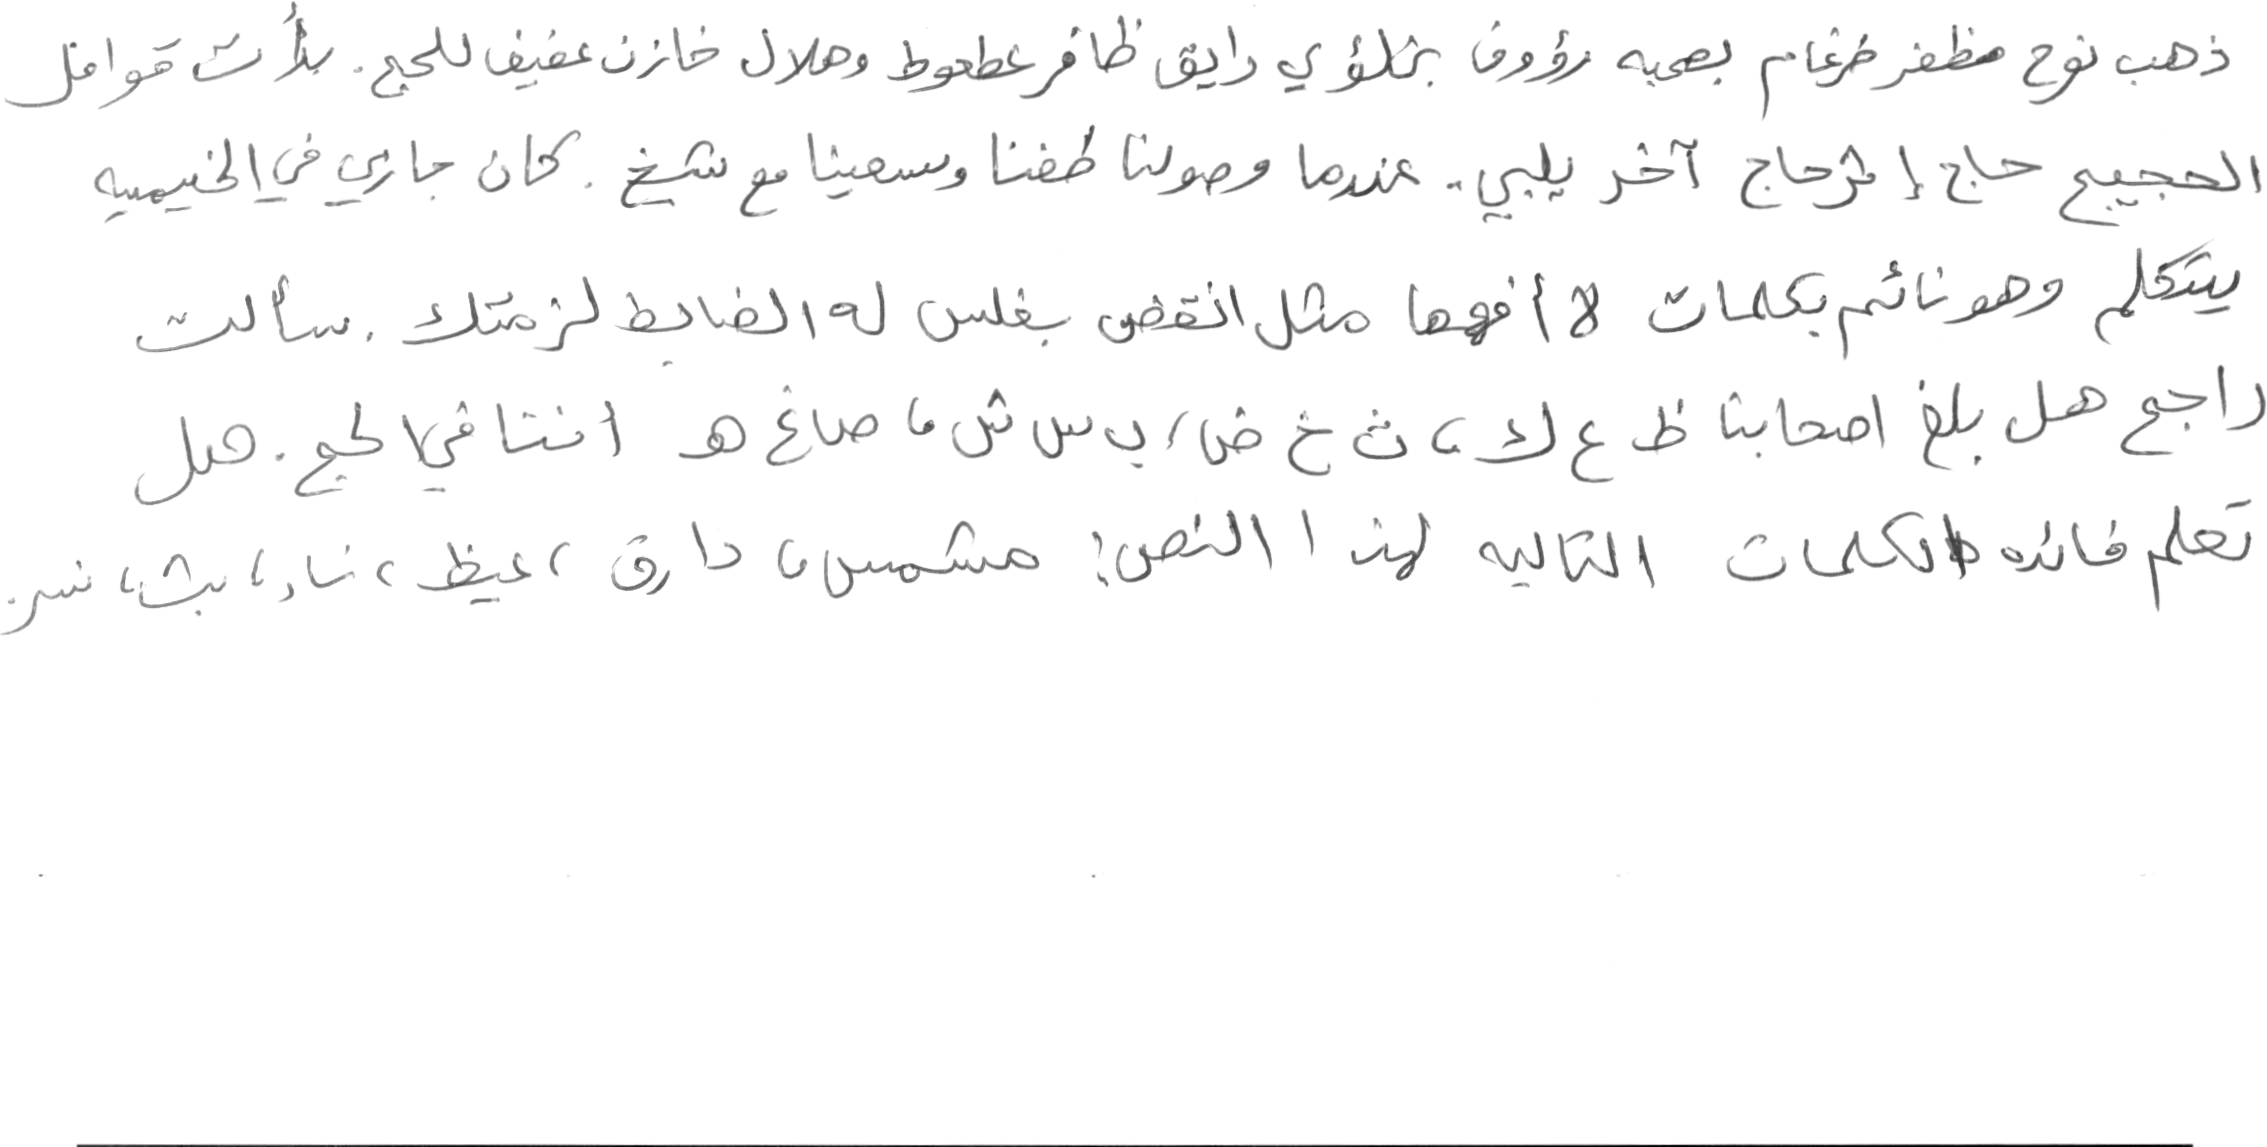 ذهب نوح مظفر ضرغام بصحبه رؤوف بن لؤي رايق ظافر عطعوط وهلال خازن عفيف للحج. بدأت قوافل
الحجيج حاج إثر حاج آخر يلبي. عندما وصولنا طفنا وسعينا مع شيخ. كان جاري في الخيميه
يتكلم وهو نائم بكلمات لا أفهمها مثل انقض بغلس له الضابط لزمتك. سألت
راجح هل بلغ اصحابنا ظ ع ك، ث خ ض، ب س ش، صاغ هـ أننا في الحج. هل
تعلم فائده الكلمات التاليه لهذا النص: مشمس، دارق، غيظ، نار، بث، نسر.